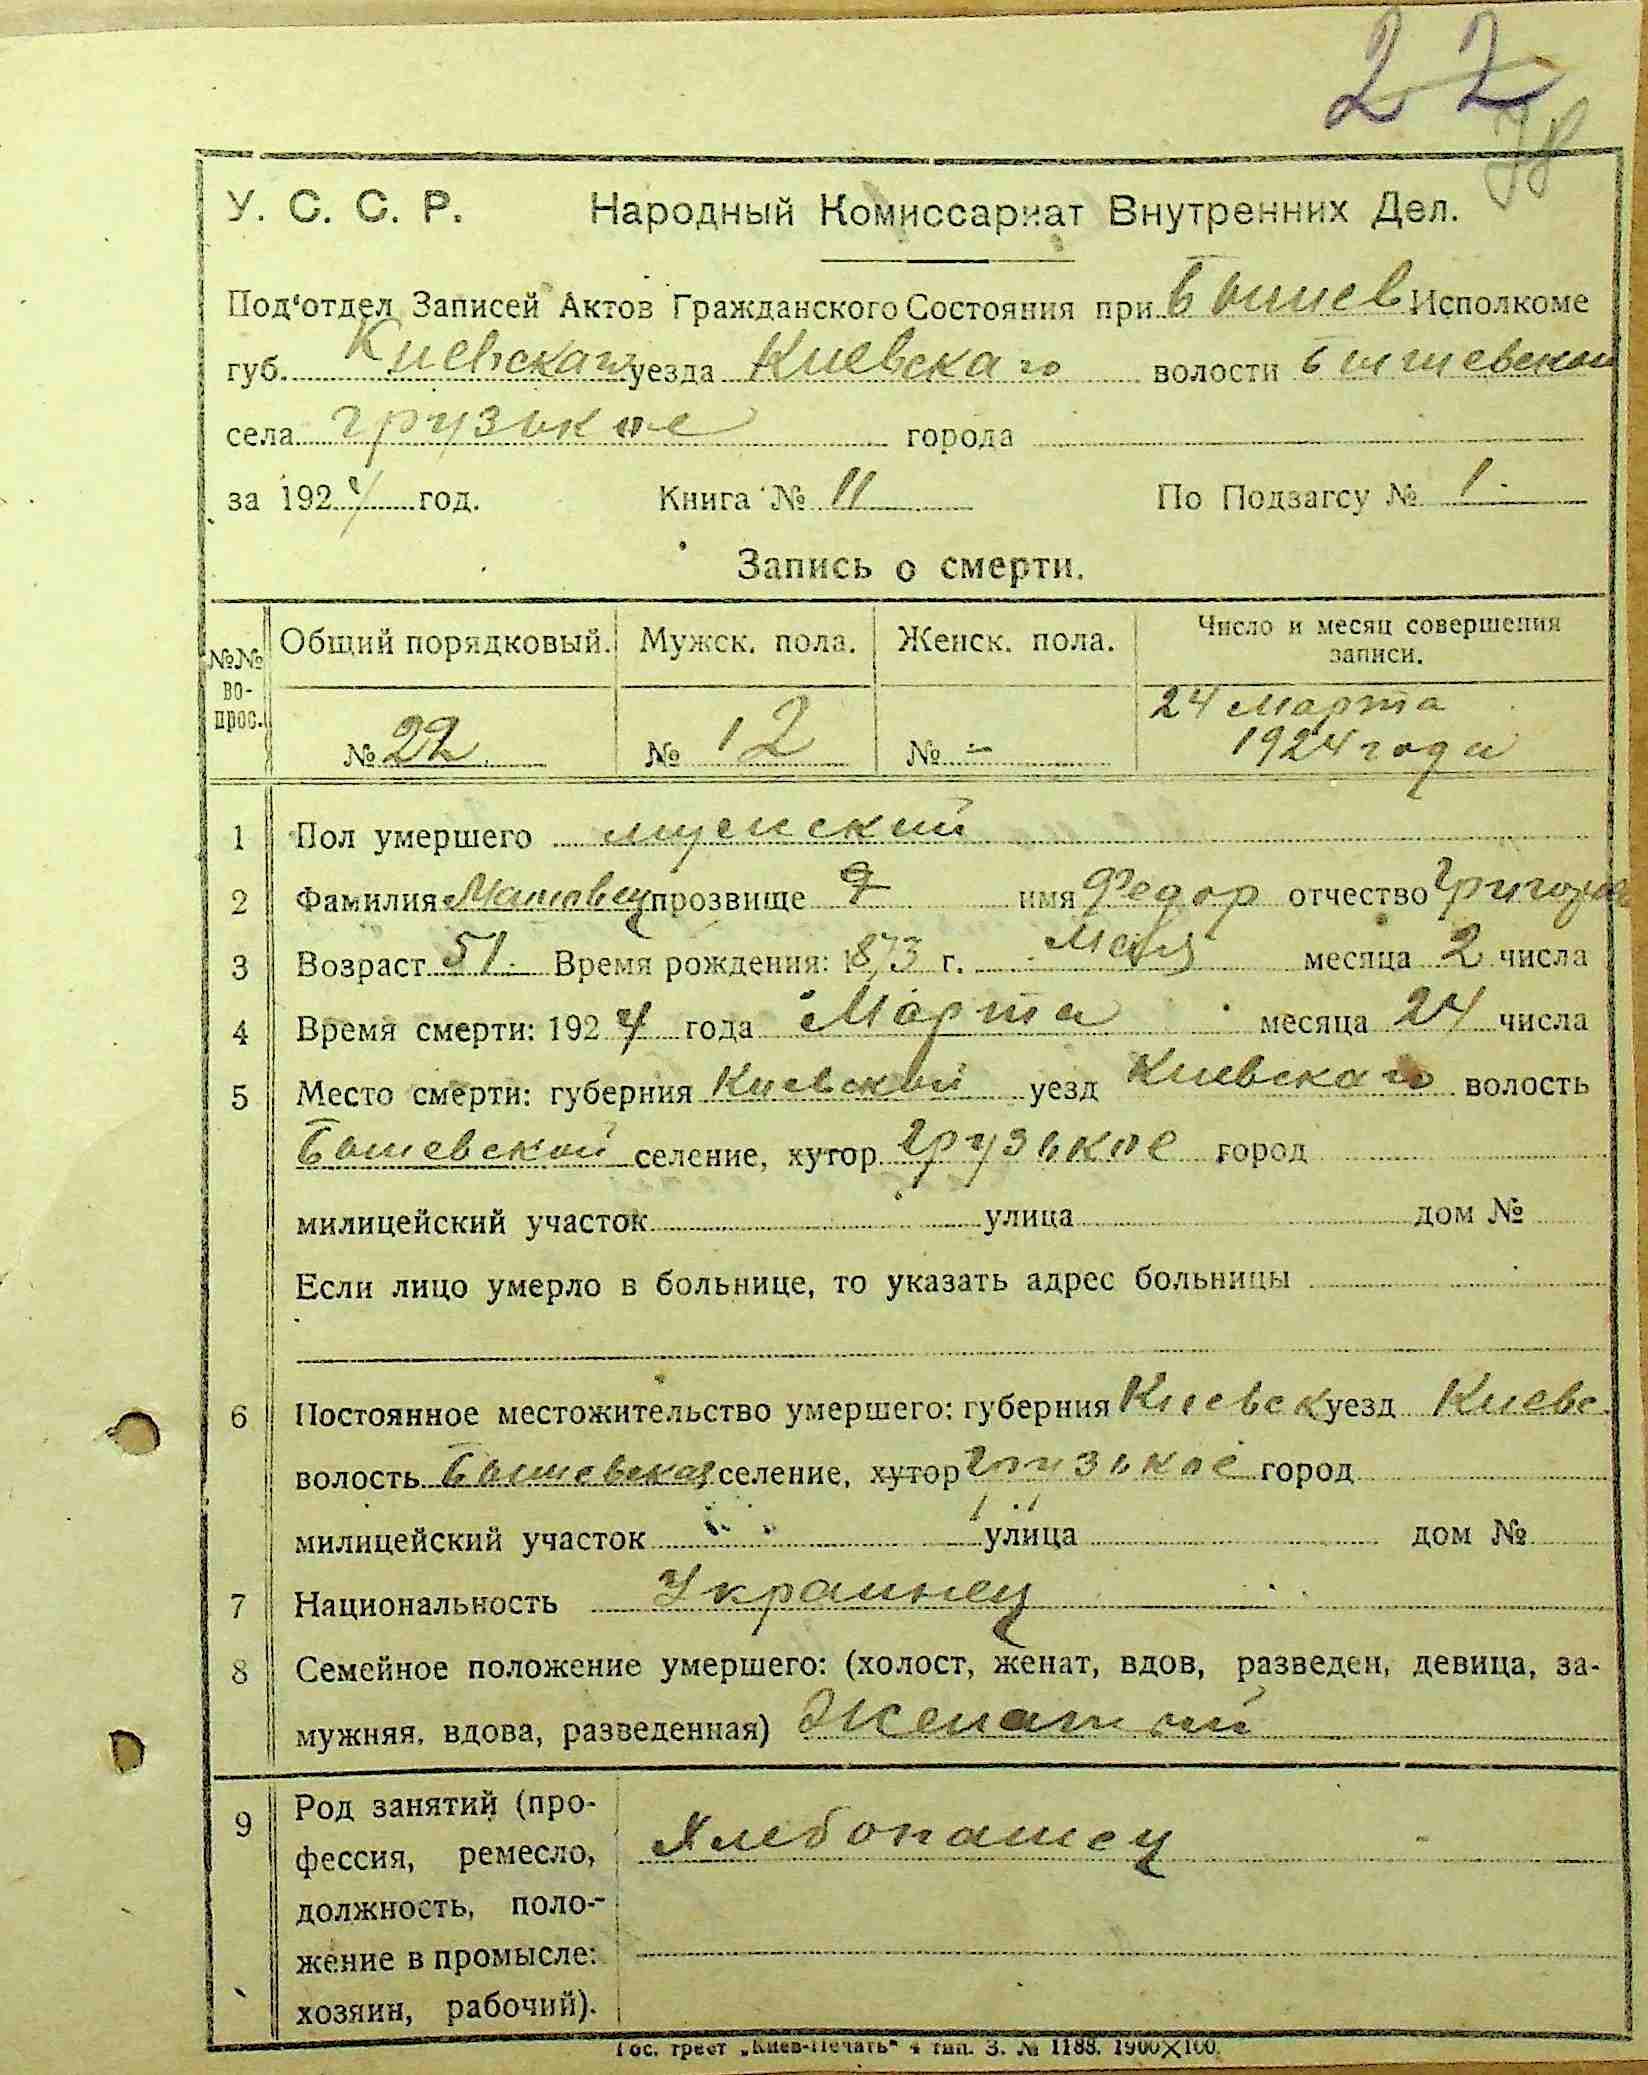 22
У. С. С. Р. Народный Комиссариат Внутренних Дел.
Под'отдел Записей Актов Гражданского Состояния при Бышев Исполкоме
губ. Киевскаго уезда Киевскаго волости Бышевской
села Грузькое города
за 1924 год. Книга № 11 По Подзагсу № 1.
Запись о смерти.
№№ во-прос. Общий порядковый. Мужск. пола. Женск. пола. Число и месяц совершения записи.
№ 22 № 12 № - 24 Марта 1924 года
1 Пол умершего мужский
2 Фамилия прозвище имя Федор отчество Григорьев
3 Возраст 51. Время рождения: 1873 г. Мая месяца 2 числа
4 Время смерти: 1924 года Марта месяца 24 числа
5 Место смерти: губерния Киевской уезд Киевскаго волость
Бышевской селение, хутор Грузькое город
милицейский участок улица дом №
Если лицо умерло в больнице, то указать адрес больницы
6 Постоянное местожительство умершего: губерния Киевск уезд Киевс.
волость Бышевская селение, хутор Грузькое город
милицейский участок улица дом №
7 Национальность Украинец
8 Семейное положение умершего: (холост, женат, вдов, разведен, девица, за-
мужняя, вдова, разведенная) Женатый
9 Род занятий (про-
фессия, ремесло, Хлебопашец
должность, поло-
жение в промысле:
хозяин, рабочий).
Гос. трест „Киев-Печать" 4 тип. З. № 1188. 1900×100.